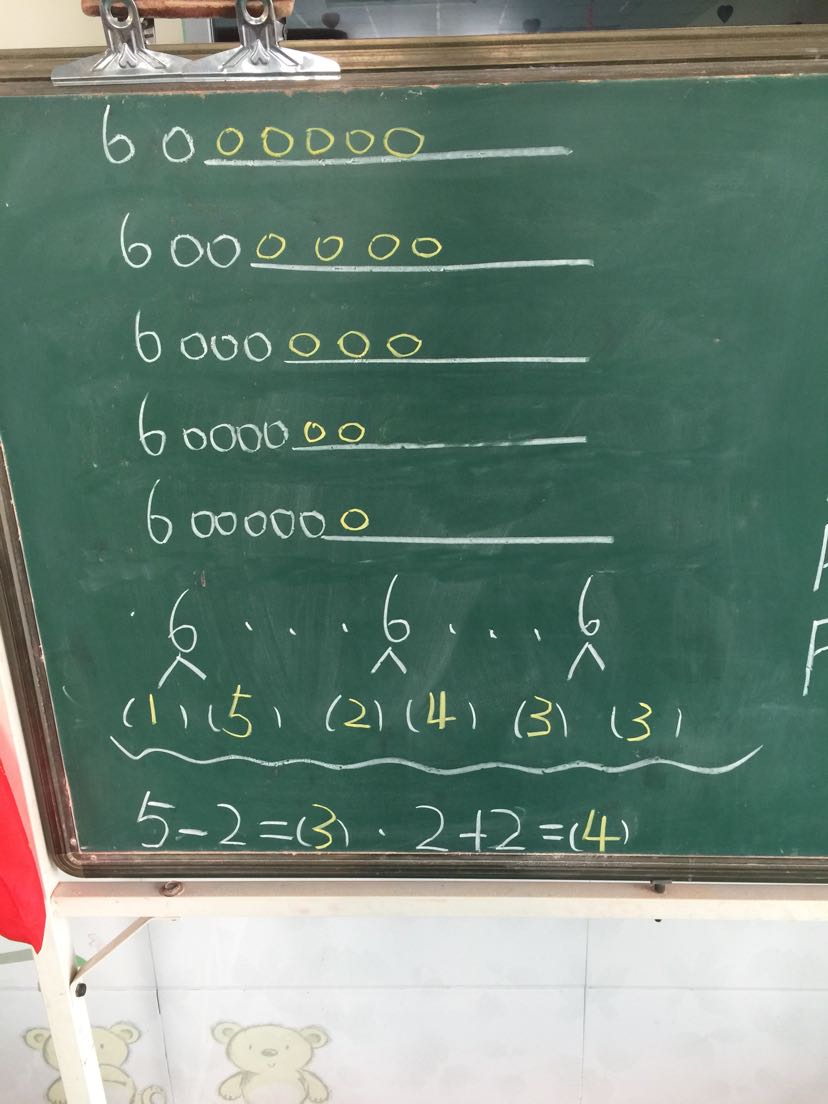 6 0 0 0 0 0 0
6 0 0 0 0 0 0
6 0 0 0 0 0 0
6 0 0 0 0 0 0
6 0 0 0 0 0 0
6 . . . 6 . . . 6
(1) (5) (2) (4) (3) (3)
5-2=(3) . 2+2=(4)